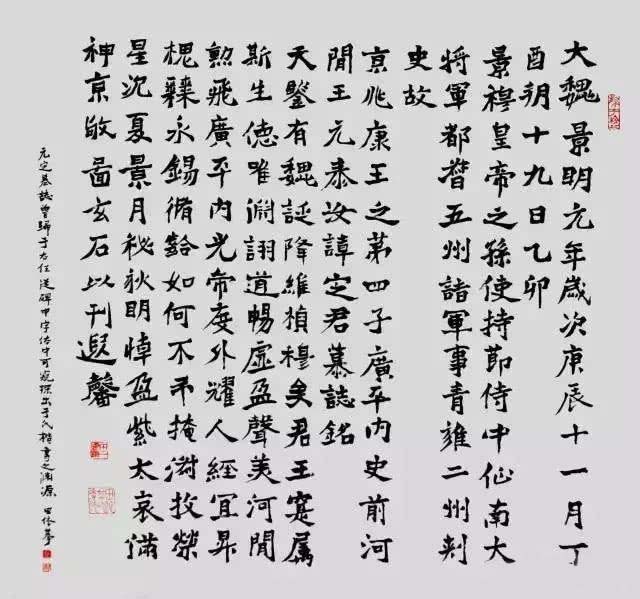 大魏景明元年歲次庚辰十一月丁
酉朔十九日乙卯
景穆皇帝之孫使持節侍中征南大
將軍都督五州諸軍事青雍二州刺
史故
京兆康王之第四子廣平內史前河
間王元泰安諱定君墓誌銘
天鑒有魏誕降維楨穆矣君王寔屬
斯生德唯淵詡道暢虛盈聲美河間
勳飛廣平內光帝度外耀人經宜昇
槐棘永錫脩齡如何不弔掩淵投榮
星沉夏景月秘狄明悼盈紫太哀滿
神京敬圖玄石以刊遐馨
元定墓誌曾歸于右任從碑中字体中可窺探出于氏楷書之淵源